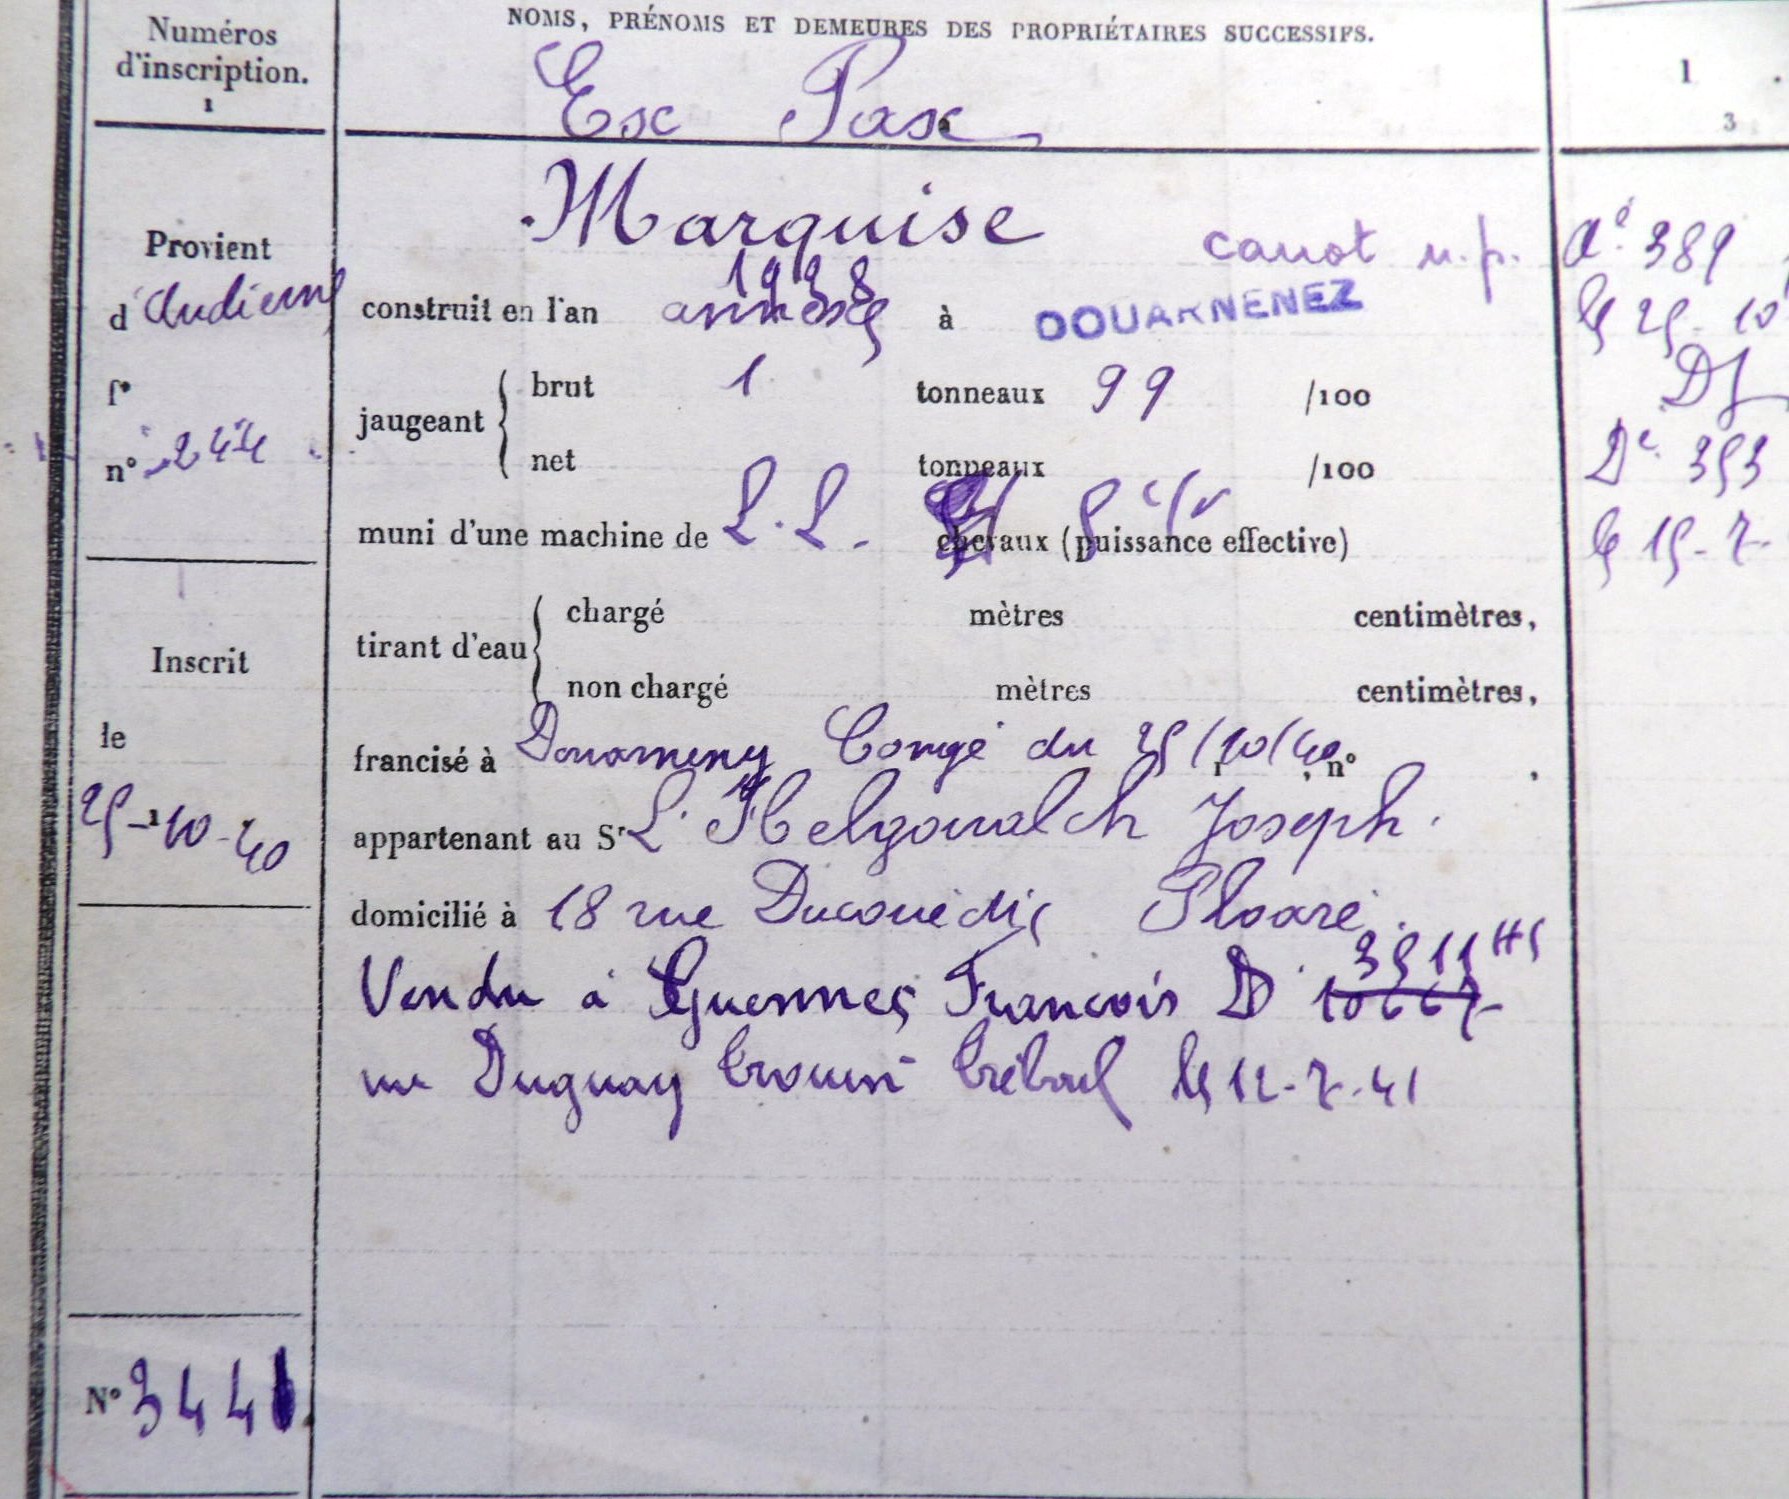 Numéros d'inscription.
1
NOMS, PRÉNOMS ET DEMEURES DES PROPRIÉTAIRES SUCCESSIFS.
1
3
Esc Pax
Marquise
canot n.p.
Provient
d'Audierne
f°
n° 244
construit en l'an 1938 à DOUARNENEZ
jaugeant brut 1 tonneaux 99 /100
net tonneaux /100
muni d'une machine de L.L. chevaux (puissance effective) 5 c/v
tirant d'eau chargé mètres centimètres,
non chargé mètres centimètres,
Inscrit
le
25-10-40
francisé à Douarnenez Congé du 25/10/40 n° ,
appartenant au Sr L'Helgoualch Joseph.
domicilié à 18 rue Ducouëdic Ploaré.
3511 HS
Vendu à Guennec François D 10667
rue Duguay Trouin Tréboul le 12-7-41
N° 3441
Ae. 389
le 25-10
De. 353
le 15-7-